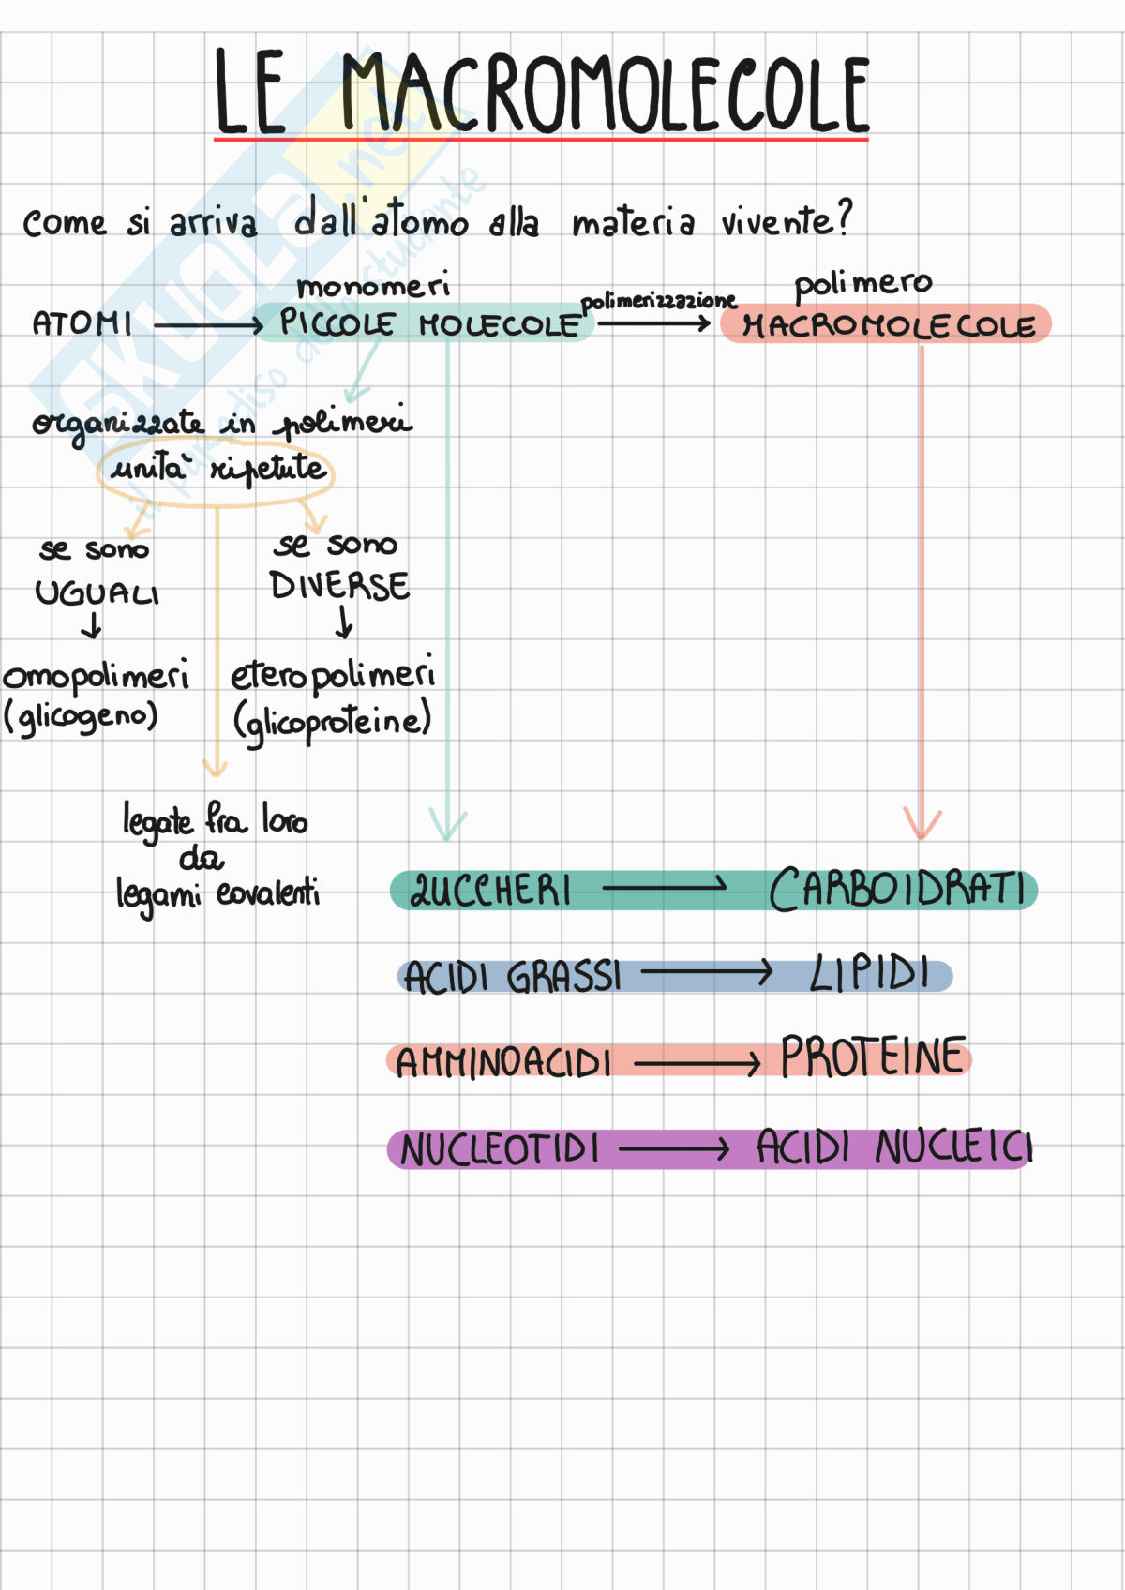 LE MACROMOLECOLE
come si arriva dall'atomo alla materia vivente?
monomeri
polimerizzazione
polimero
ATOMI → PICCOLE MOLECOLE → MACROMOLECOLE
organizzate in polimeri
unità ripetute
se sono
UGUALI
↓
omopolimeri
(glicogeno)
se sono
DIVERSE
↓
eteropolimeri
(glicoproteine)
legate fra loro
da
legami covalenti
ZUCCHERI → CARBOIDRATI
ACIDI GRASSI → LIPIDI
AMMINOACIDI → PROTEINE
NUCLEOTIDI → ACIDI NUCLEICI
SKUOLA.net
il paradiso dello studente